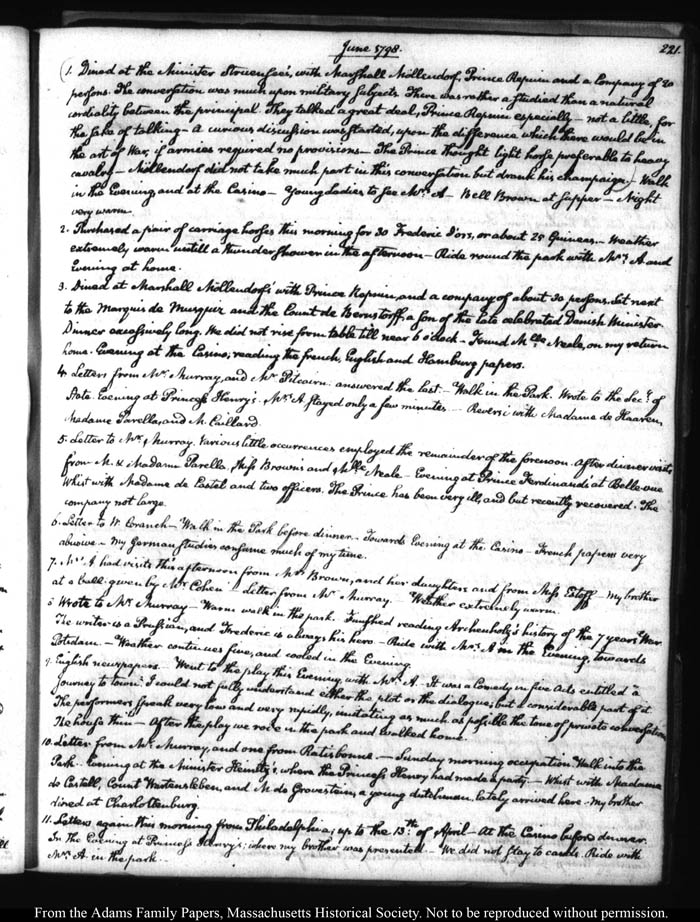 June 1798.
221.
1. Dined at the Minister Struensee's, with Marshall Möllendorf, Prince Repnin and a Company of 20
persons. The conversation was much upon military subjects. There was rather a studied than a natural
cordiality between the principal. They talked a great deal, Prince Repnin especially — not a little for
the sake of talking — A curious discussion was started, upon the difference which there would be in
the art of War, if armies required no provisions — The Prince thought light horse preferable to heavy
cavalry — Möllendorf did not take much part in this conversation but drank his champaign.) — Walk
in the Evening and at the Casino — Young Ladies to see Mrs. A — Bell Brown at supper — Night
very warm.
2. Purchased a pair of carriage horses this morning for 30 Frederic D'ors, or about 25 Guineas. — Weather
extremely warm untill a thunder shower in the afternoon — Ride round the park with Mrs. A and
Evening at home.
3. Dined at Marshall Möllendorf's with Prince Repnin, and a company of about 30 persons. Sat next
to the Marquis de Musquiz and the Count de Bernstorff, a son of the late celebrated Danish Minister.
Dinner excessively long. We did not rise from table till near 6 o'clock — Found Mlle Neale, on my return
home. Evening at the Casino; reading the french, English and Hamburg papers.
4. Letters from Mr. Murray, and Mr Pitcairn. answered the last — Walk in the Park. Wrote to the Secy. of
State. Evening at Princess Henry's. Mrs. A stayed only a few minutes. — Reversi with Madame de Haaren,
Madame Parella, and M. Caillard.
5. Letter to Mr. Murray. Various little occurrences employed the remainder of the forenoon. After dinner visits
from M. & Madame Parella, Miss Brown's and Mlle Neale — Evening at Prince Ferdinand's at Belle-vue
Whist with Madame de Castel and two officers. The Prince has been very ill, and but recently recovered. The
company not large.
6. Letter to W. Branch — Walk in the Park before dinner — Towards Evening at the Casino — French papers very
abusive — My German studies consume much of my time.
7. Mrs. A had visits this afternoon from Mrs Brown, and her daughters, and from Miss Estoff — My brother
at a ball given by Mr. Cohen — Letter from Mr. Murray. — Weather extremely warm.
8. Wrote to Mr Murray — Warm walk in the park. Finished reading Archenholz's history of the 7 years War
The writer is a Prussian, and Frederic is always his hero — Ride with Mrs. A in the Evening, towards
Potsdam — Weather continues fine, and cooled in the Evening.
9. English newspapers — Went to the play this Evening with Mrs. A. It was a Comedy in five Acts entitled a
Journey to town. I could not fully understand either the plot or the dialogue, but a considerable part of it
The performers speak very low and very rapidly, imitating as much as possible the tone of private conversation
The house thin — After the play we rode in the park and walked home.
10. Letter from Mr. Murray, and one from Ratisbonne — Sunday morning occupation. Walk into the
Park — Evening at the Minister Heinitz's, where the Princess Henry had made a party — Whist with Madame
de Castell, Count Wartensleben, and M. de Grovestein, a young dutchman, lately arrived here — My brother
dined at Charlottenburg.
11. Letters again this morning from Philadelphia; up to the 13th. of April — At the Casino before dinner.
In the Evening at Princess Henry's; where my brother was presented — We did not stay to cards. Ride with
Mrs. A. in the park —
From the Adams Family Papers, Massachusetts Historical Society. Not to be reproduced without permission.